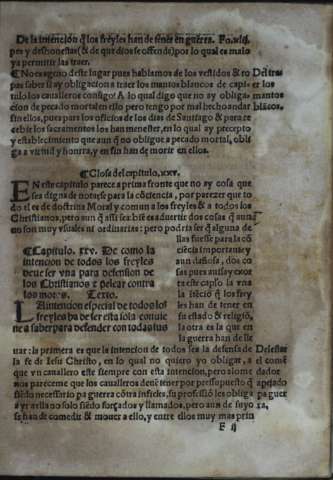 De la intención q̃ los freyles han de tener en guerra. Fo.xliij.
pes y deshonestas (& de que dios se offende) por lo qual es malo
ya permitir las traer.
¶ No es ageno deste lugar pues hablamos de los vestidos & ro
pas saber si ay obligacion a traer los mantos blancos de capi-
tulo los caualleros consigo? A lo qual digo que no ay obliga-
cion de pecado mortal en ello pero tengo por mal hecho andar
sin ellos, pues para los oficios de los dias de Santiago & para re
cebir los sacramentos los han menester, en lo qual ay precepto
y establecimiento que aun q̃ no obligue a pecado mortal, obli
ga a virtud y honra, y en fin han de morir en ellos.
Del tra-
er los
mantos
blãcos.
¶ Glosa del capitulo, xxv.
EN este capitulo parece a prima fronte que no ay cosa que
sea digna de notarse para la cõciencia, por parecer que to
do el es de doctrina Moral y comun a los freyles & a todos los
Christianos, pero aun q̃ assi sea: es a duertir dos cosas aunq̃ a
en son muy vsuales ni ordinarias: pero podria ser q̃ alguna de
¶ Capitulo. xxv. De como la
intencion de todos los freyles
deue ser vna para defension de
los Christianos & pelear contra
los moros. Texto.
LA intencion especial de todos los
freyles ha de ser esta sola conuie
ne a saber para defender con todas sus
llas fuesse para la cõ
ciencia importante y
aun dañosa, dos co
sas pues auisa y exor
ta este capło la vna
la intẽciõ q̃ los frey
les han de tener en
su estado & religiõ,
la otra es la que en
la guerra han de lle
uar: la primera es que la intencion de todos sea la defensa de
la fe de Iesu Christo, en lo qual no quiero yo obligar, a
que vn cauallero este siempre con esta intencion, pero alome
nos pareceme que los caualleros deuẽ tener por presupuesto q̃
siẽdo necessario pa guerra cõtra infieles, su professiõ les obliga
a yr a ella no solo siẽdo forçados y llamados, pero aun de suyo
se han de comedir & mouer a ello, y entre ellos muy mas prin
F ij